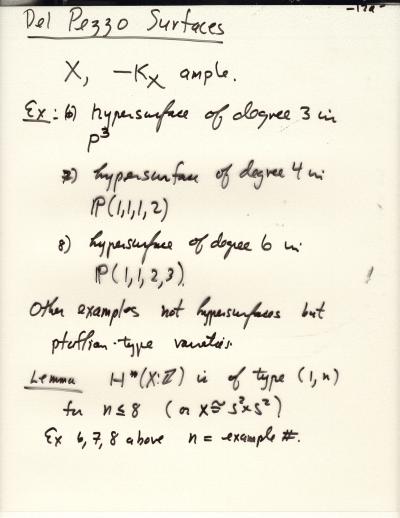 Del Pezzo Surfaces
X, -K_X ample.
Ex: 6) hypersurface of degree 3 in
P^3
7) hypersurface of degree 4 in
P(1,1,1,2)
8) hypersurface of degree 6 in
P(1,1,2,3)
Other examples not hypersurfaces but
pfaffian-type varieties.
Lemma (X; Z) is of type (1, n)
for n ≤ 8 (or X ≅ S^2 x S^2)
Ex 6, 7, 8 above n = example #.